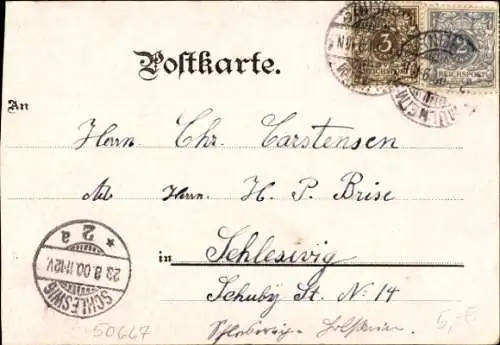 3
REICHSPOST
2
REICHSPOST
Postkarte.
An
Herrn Chr. Carstensen
Adr. Herrn H. P. Brise
in Schleswig
Schuby St. No 14
Schleswig-Holstein.
SCHLESWIG
23.8.00.11-12V.
* 2a
50667
5,-€